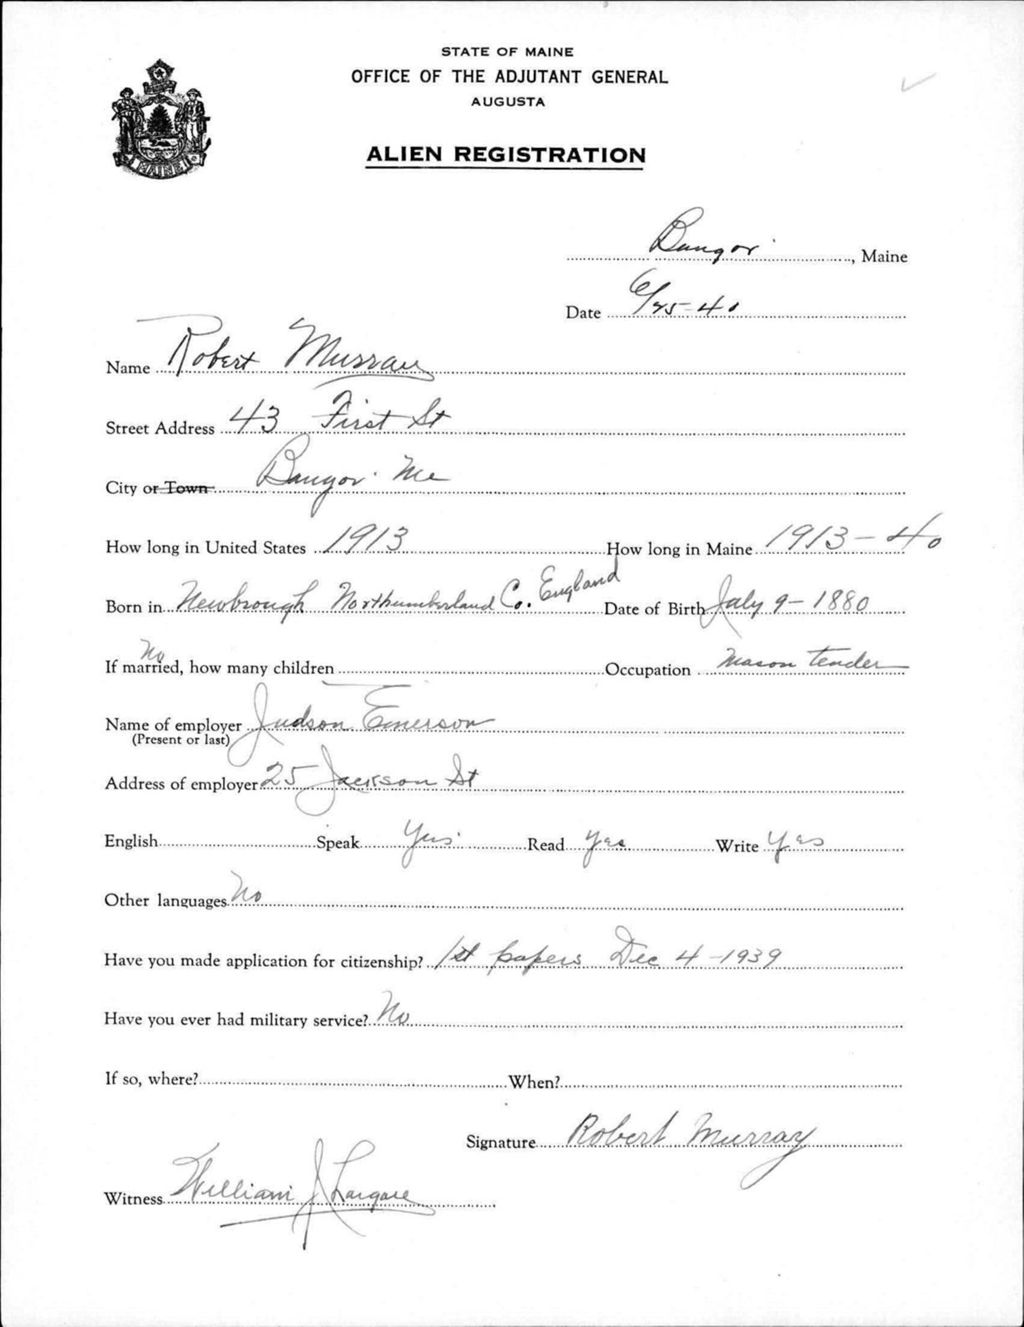 STATE OF MAINE
OFFICE OF THE ADJUTANT GENERAL
AUGUSTA
ALIEN REGISTRATION
MAINE
Bangor, Maine
Date 6/25-40
Name Robert Murray
Street Address 43 First St
City or Town Bangor Me
How long in United States 1913 How long in Maine 1913-40
Born in Newbrough Northumberland Co. England Date of Birth July 9-1880
If married, how many children No Occupation Mason tender
Name of employer Judson Emerson
(Present or last)
Address of employer 25 Jackson St
English Speak Yes Read Yes Write Yes
Other languages No
Have you made application for citizenship? 1st papers Dec 4-1939
Have you ever had military service? No
If so, where? When?
Signature Robert Murray
Witness William J